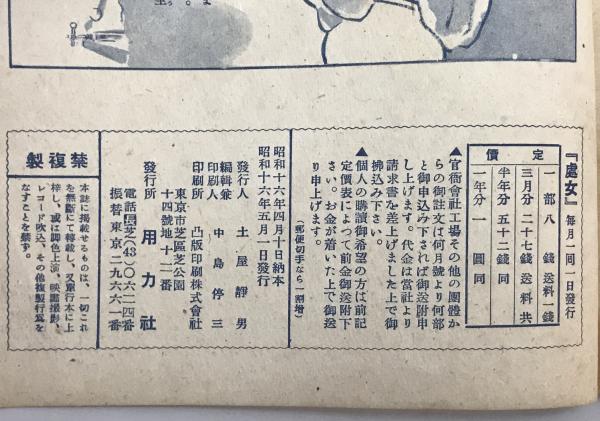 『處女』 毎月一回一日發行
定價
一部 八錢 送料一錢
三月分 二十七錢 送料共
半年分 五十二錢 同
一年分 一圓 同
▲官衙會社工場その他の團體か
らの御註文は何月號より何部
と御申込み下されば御送附申
し上げます。代金は當社より
請求書を差上げました上で御
拂込み下さい。
▲個人の購讀御希望の方は前記
定價表によつて前金御送附下
さい。お金が着いた上で御送
り申上げます。
(郵便切手なら一割增)
昭和十六年四月十日納本
昭和十六年五月一日發行
發行人 土屋靜男
編輯兼印刷人 中島停三
印刷所 凸版印刷株式會社
東京市芝區芝公園
十四號地十二番
發行所 用力社
電話長芝(43)〇六二四番
振替東京二九六六一番
禁複製
本誌に掲載せるものは、一切これ
を無斷にて轉載し、又單行本に上
梓し、或は脚色上演、映畫撮影、
レコード吹込、その他複製行爲を
なすことを禁ず。